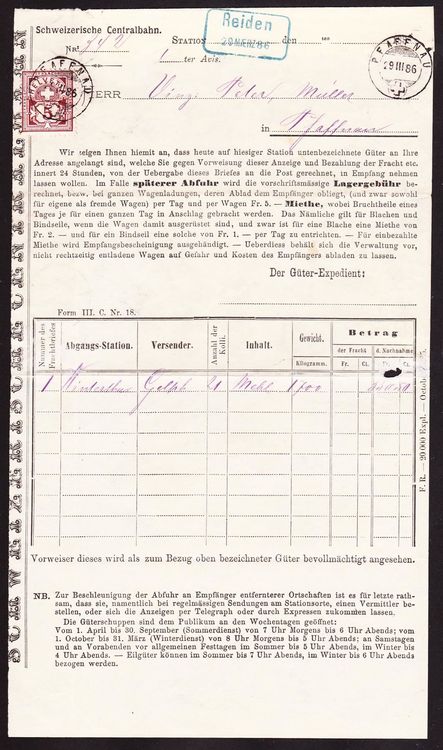 Schweizerische Centralbahn.
Reiden
29 MÆRZ 86
Nr. 742
STATION den
PFAFFNAU
29 III 86
1 ter Avis.
PFAFFNAU
HELVETIA
HERR Peter Müller
in Pfaffnau
Wir zeigen Ihnen hiemit an, dass heute auf hiesiger Station untenbezeichnete Güter an Ihre
Adresse angelangt sind, welche Sie gegen Vorweisung dieser Anzeige und Bezahlung der Fracht etc.
innert 24 Stunden, von der Uebergabe dieses Briefes an die Post gerechnet, in Empfang nehmen
lassen wollen. Im Falle späterer Abfuhr wird die vorschriftsmässige Lagergebühr be-
rechnet, bezw. bei ganzen Wagenladungen, deren Ablad dem Empfänger obliegt, (und zwar sowohl
für eigene als fremde Wagen) per Tag und per Wagen Fr. 5. — Miethe, wobei Bruchtheile eines
Tages je für einen ganzen Tag in Anschlag gebracht werden. Das Nämliche gilt für Blachen und
Bindseile, wenn die Wagen damit ausgerüstet sind, und zwar ist für eine Blache eine Miethe von
Fr. 2. — und für ein Bindseil eine solche von Fr. 1. — per Tag zu entrichten. — Für einbezahlte
Miethe wird Empfangsbescheinigung ausgehändigt. — Ueberdiess behält sich die Verwaltung vor,
nicht rechtzeitig entladene Wagen auf Gefahr und Kosten des Empfängers abladen zu lassen.
Der Güter-Expedient:
Form III. C. Nr. 18.
Nummer des Frachtbriefes
Abgangs-Station.
Versender.
Anzahl der Kolli.
Inhalt.
Gewicht.
Kilogramm.
Betrag
der Fracht
d. Nachnahme
Fr. Ct.
1 Winterthur 21 Mehl
F. R. — 20 000 Expl. — October
SCHWEIZERISCHE
Vorweiser dieses wird als zum Bezug oben bezeichneter Güter bevollmächtigt angesehen.
NB. Zur Beschleunigung der Abfuhr an Empfänger entfernterer Ortschaften ist es für letzte rath-
sam, dass sie, namentlich bei regelmässigen Sendungen am Stationsorte, einen Vermittler be-
stellen, oder sich die Anzeigen per Telegraph oder durch Expressen zukommen lassen.
Die Güterschuppen sind dem Publikum an den Wochentagen geöffnet:
Vom 1. April bis 30. September (Sommerdienst) von 7 Uhr Morgens bis 6 Uhr Abends; vom
1. October bis 31. März (Winterdienst) von 8 Uhr Morgens bis 5 Uhr Abends; an Samstagen
und an Vorabenden vor allgemeinen Festtagen im Sommer bis 5 Uhr Abends, im Winter bis
4 Uhr Abends. — Eilgüter können im Sommer bis 7 Uhr Abends, im Winter bis 6 Uhr Abends
bezogen werden.